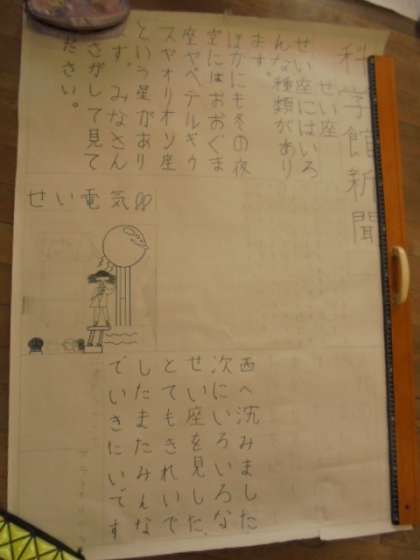 科学館新聞
せい座
せい座にはいろ
んな種類があり
ます。
ほかにも冬の夜
空にはおおぐま
座やベテルギウ
スやオリオン座
という星があり
ます。みなさん
さがして見て
ださい。
せい電気
西へ沈みました
次にいろいろな
せい座を見した
とてもきれいで
したまたみんな
でいきたいです